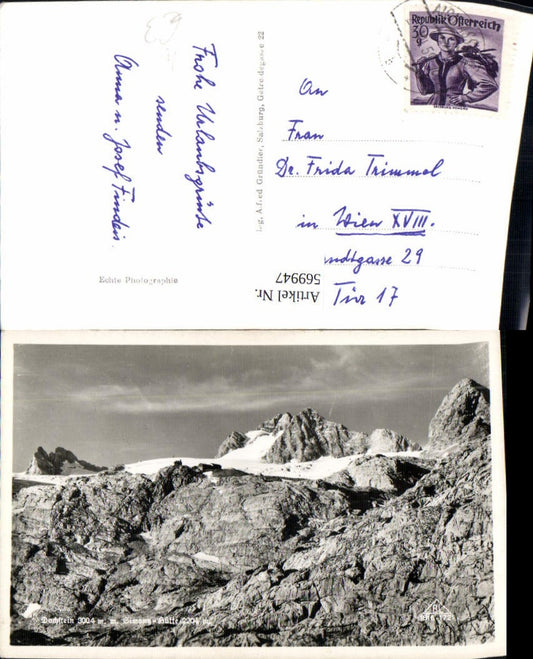 Republik Österreich
30
g
Frohe Urlaubsgrüße
senden
Anna u. Josef
An
Frau
Dr. Frida Trimmel
in Wien XVIII.
ndtgasse 29
Tür 17
Artikel Nr.
569947
Alfred Gründler, Salzburg, Getreidegasse 22
Echte Photographie
Dachstein 3004 m. m. Simony-Hütte 2204 m.